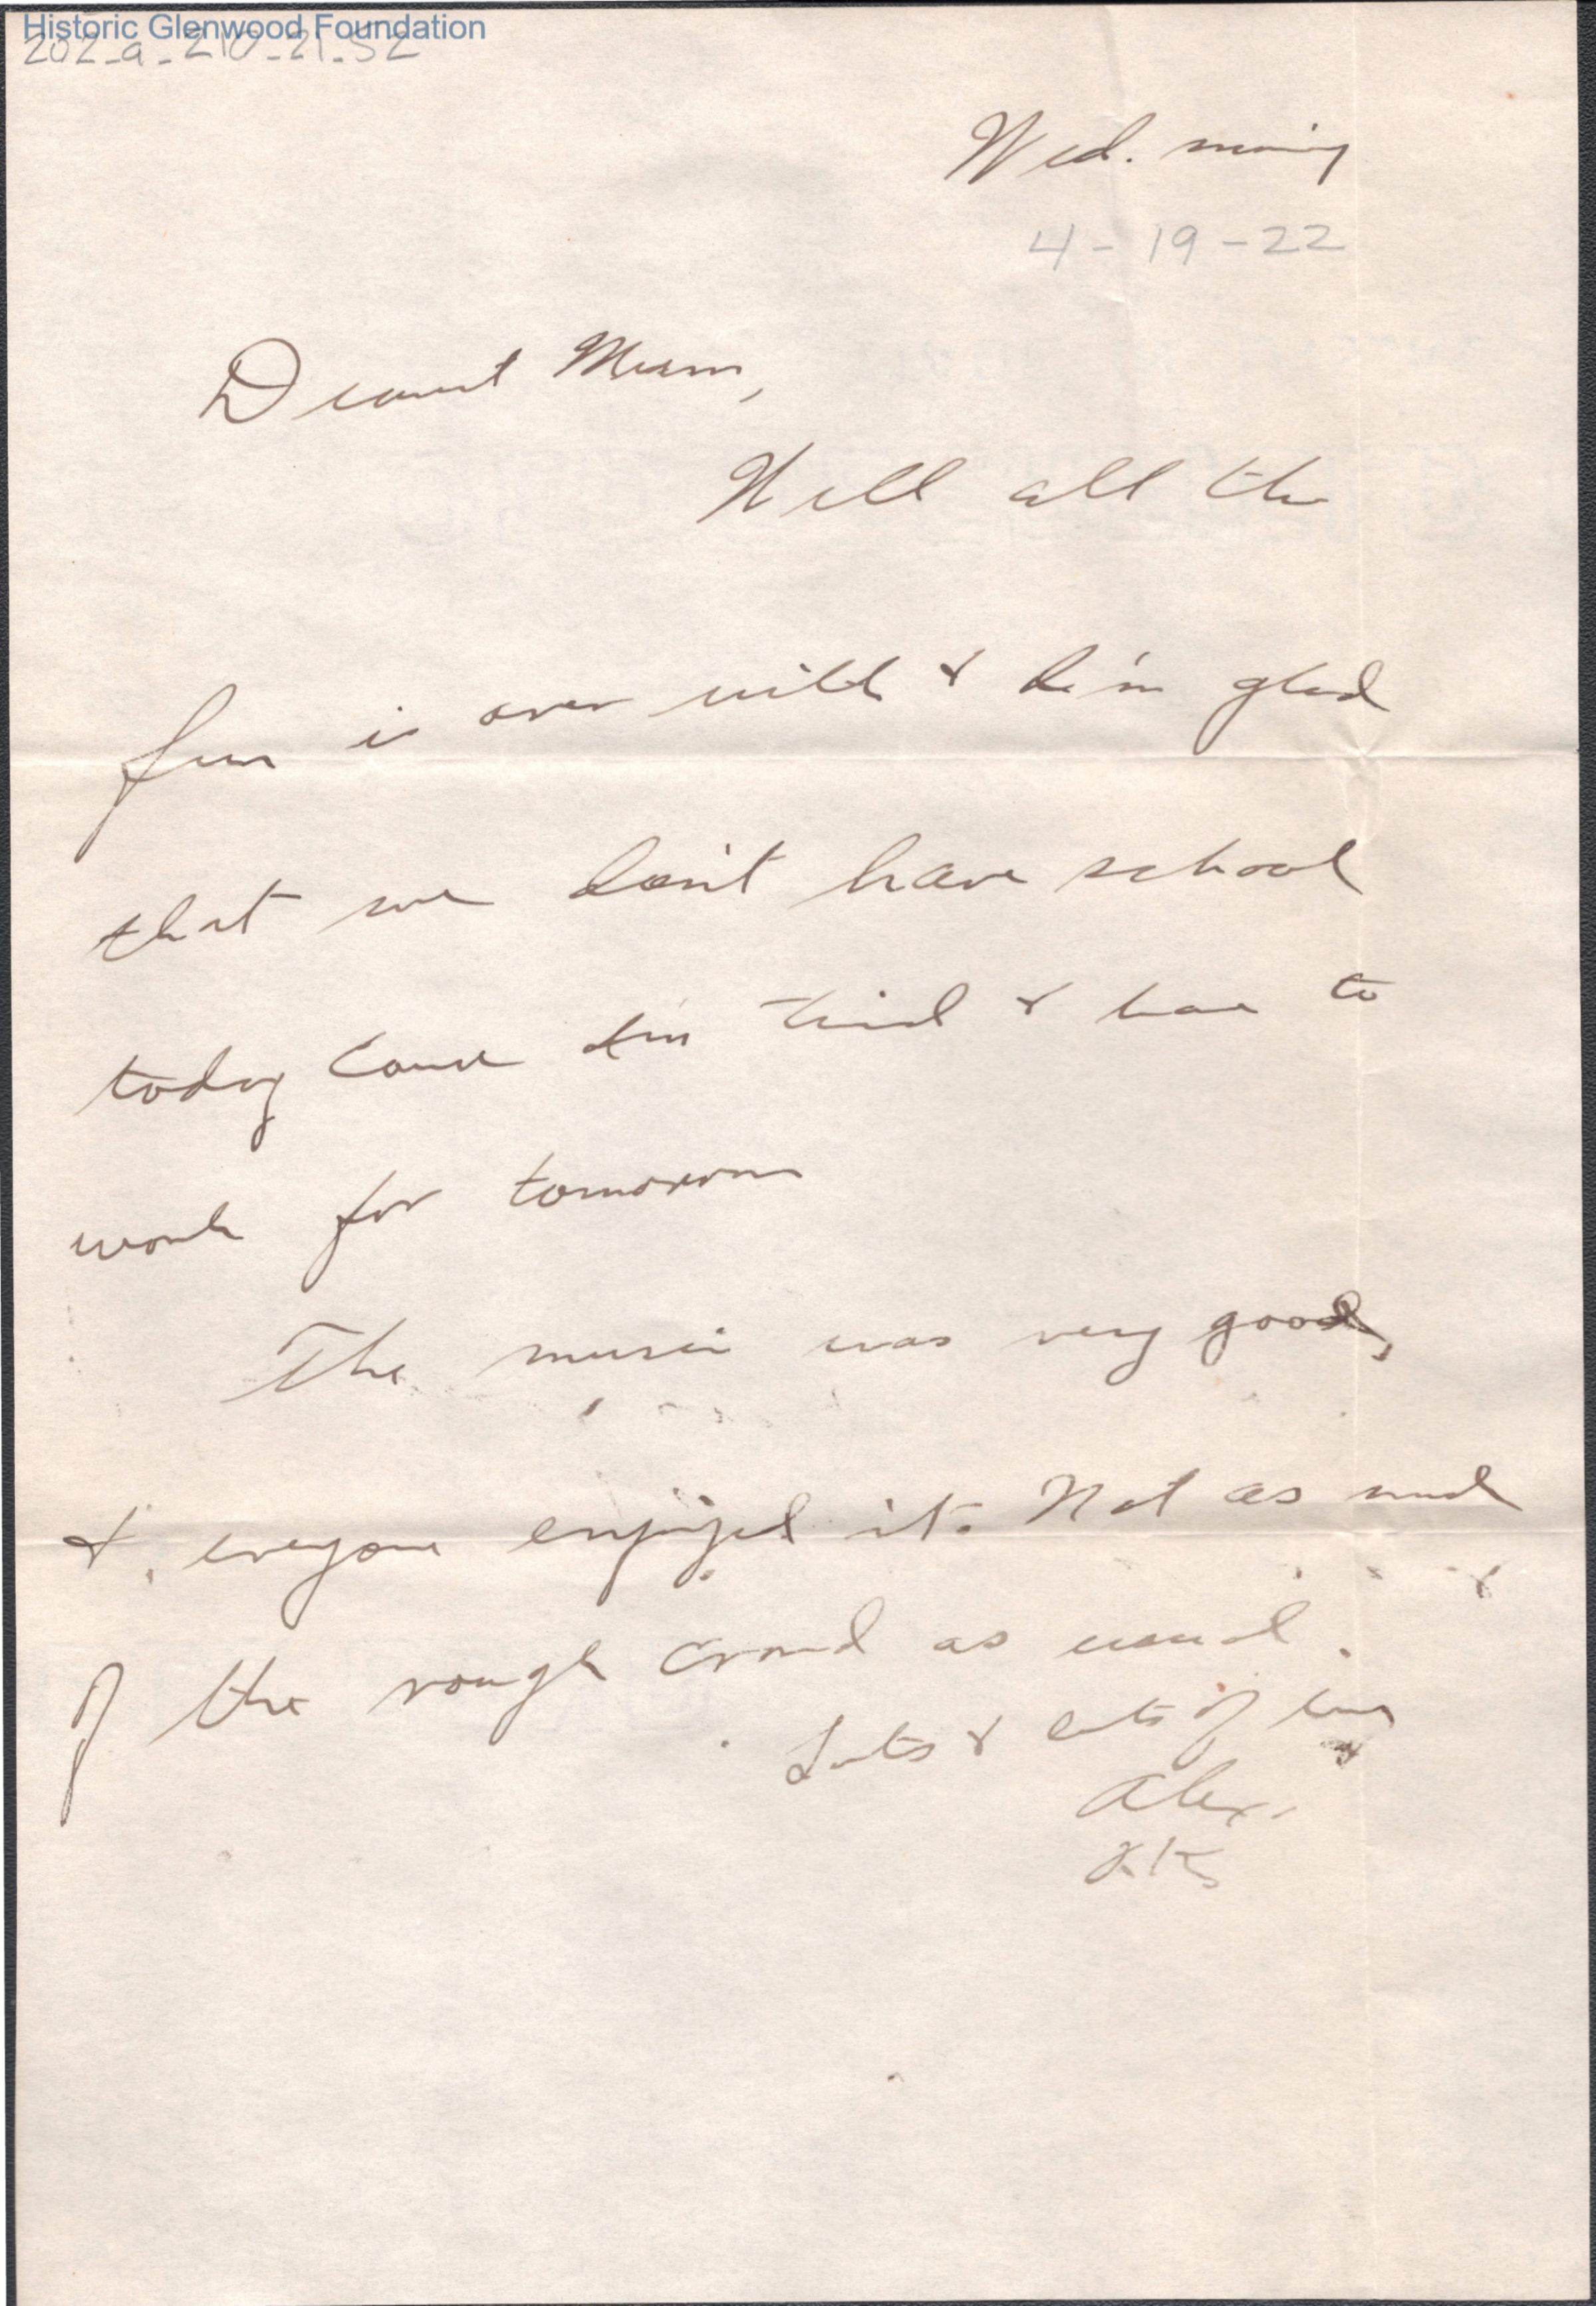 Historic Glenwood Foundation
202-a-210-21.52
Wed. morning
4-19-22
Dearest Mum,
Well all the
fun is over with & I'm glad
that we don't have school
today cause I'm tired & have to
work for tomorrow
The music was very good,
& everyone enjoyed it. Not as much
of the rough crowd as usual.
Lots & lots of love
Alex.